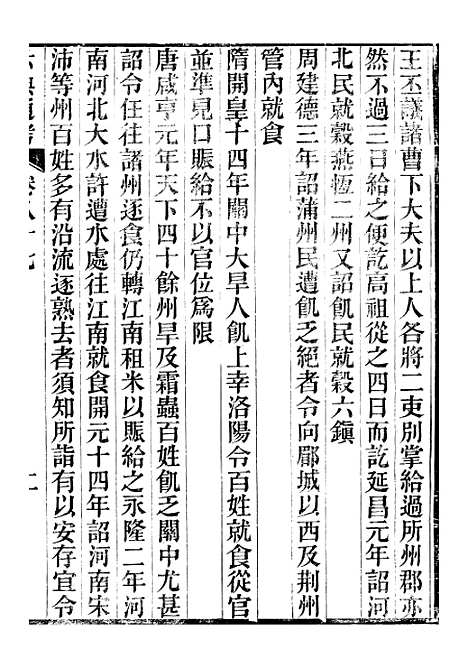 王丕議諸曹下大夫以上人各將二吏別掌給過所州郡亦
然不過三日給之便訖高祖從之四日而訖延昌元年詔河
北民就穀燕恆二州又詔飢民就穀六鎮
周建德三年詔蒲州民遭飢乏絕者令向郿城以西及荆州
管內就食
隋開皇十四年關中大旱人飢上幸洛陽令百姓就食從官
並準見口賑給不以官位爲限
唐咸亨元年天下四十餘州旱及霜蟲百姓飢乏關中尤甚
詔令任往諸州逐食仍轉江南租米以賑給之永隆二年河
南河北大水許遭水處往江南就食開元十四年詔河南宋
沛等州百姓多有沿流逐熟去者須知所詣有以安存宜令
六典通考 卷八十七 十一